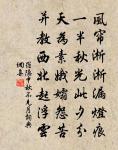 風帘淅淅漏燈痕
一半秋光此夕分
天為素娥孀怨苦
并教西北起浮雲